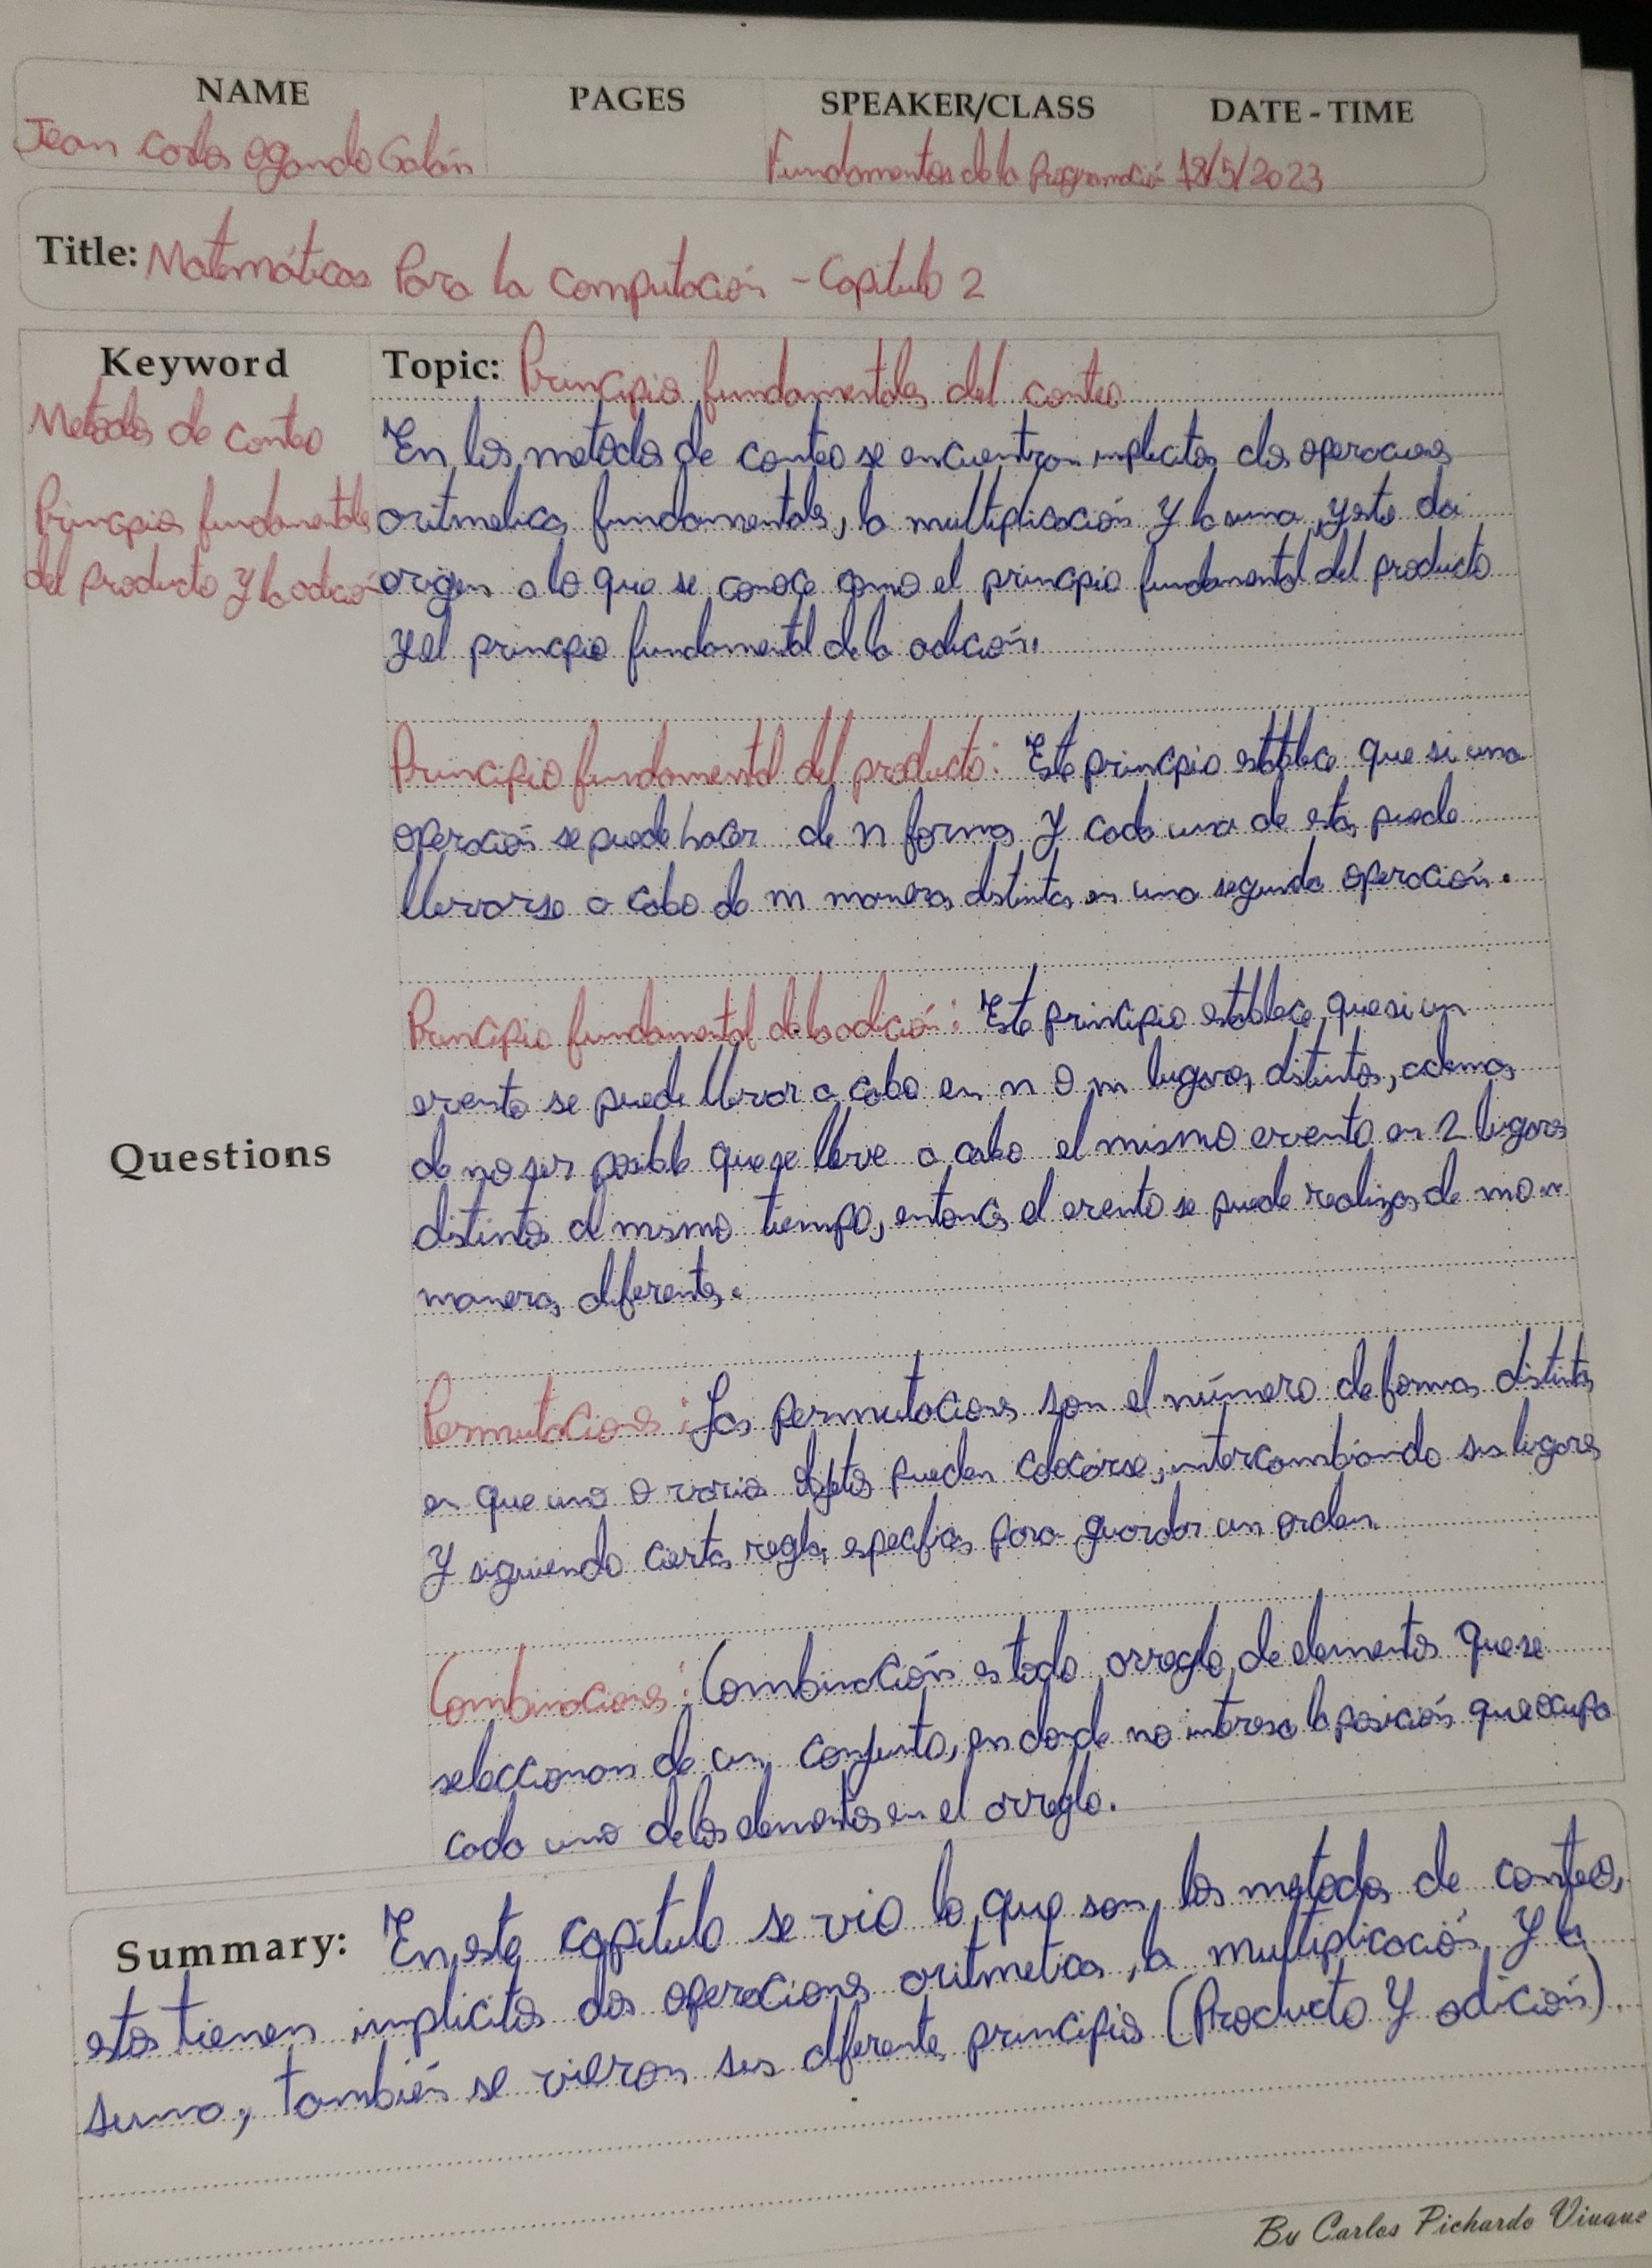 NAME PAGES SPEAKER/CLASS DATE - TIME
Jean Carlos Ogando Galán Fundamentos de la Programación 18/5/2023
Title: Matemáticas Para la Computación - Capitulo 2
Keyword
Metodos de conteo
Principios fundamentales
del producto y la adición
Topic: Principios fundamentales del conteo
En los metodos de conteo se encuentran implicitas dos operaciones
aritmeticas fundamentales, la multiplicación y la suma, y esto da
origen a lo que se conoce como el principio fundamental del producto
y el principio fundamental de la adición.
Principio fundamental del producto: Este principio establece que si una
operación se puede hacer de n formas y cada una de estas puede
llevarse a cabo de m maneras distintas en una segunda operación.
Principio fundamental de la adición: Este principio establece que si un
evento se puede llevar a cabo en n o m lugares distintos, ademas
de no ser posible que se lleve a cabo el mismo evento en 2 lugares
distintos al mismo tiempo, entonces el evento se puede realizar de
maneras diferentes.
Permutaciones: Las permutaciones son el número de formas distintas
en que uno o varios objetos pueden colocarse, intercambiando sus lugares
y siguiendo ciertas reglas especificas para guardar un orden.
Combinaciones: Combinación es todo arreglo de elementos que se
seleccionan de un conjunto, en donde no interesa la posición que ocupa
cada uno de los elementos en el arreglo.
Questions
Summary: En este capitulo se vio lo que son los metodos de conteo,
estos tienen implicitos dos operaciones aritmeticas, la multiplicación y la
suma, también se vieron sus diferentes principios (Producto y adición).
By Carlos Pichardo Viuque